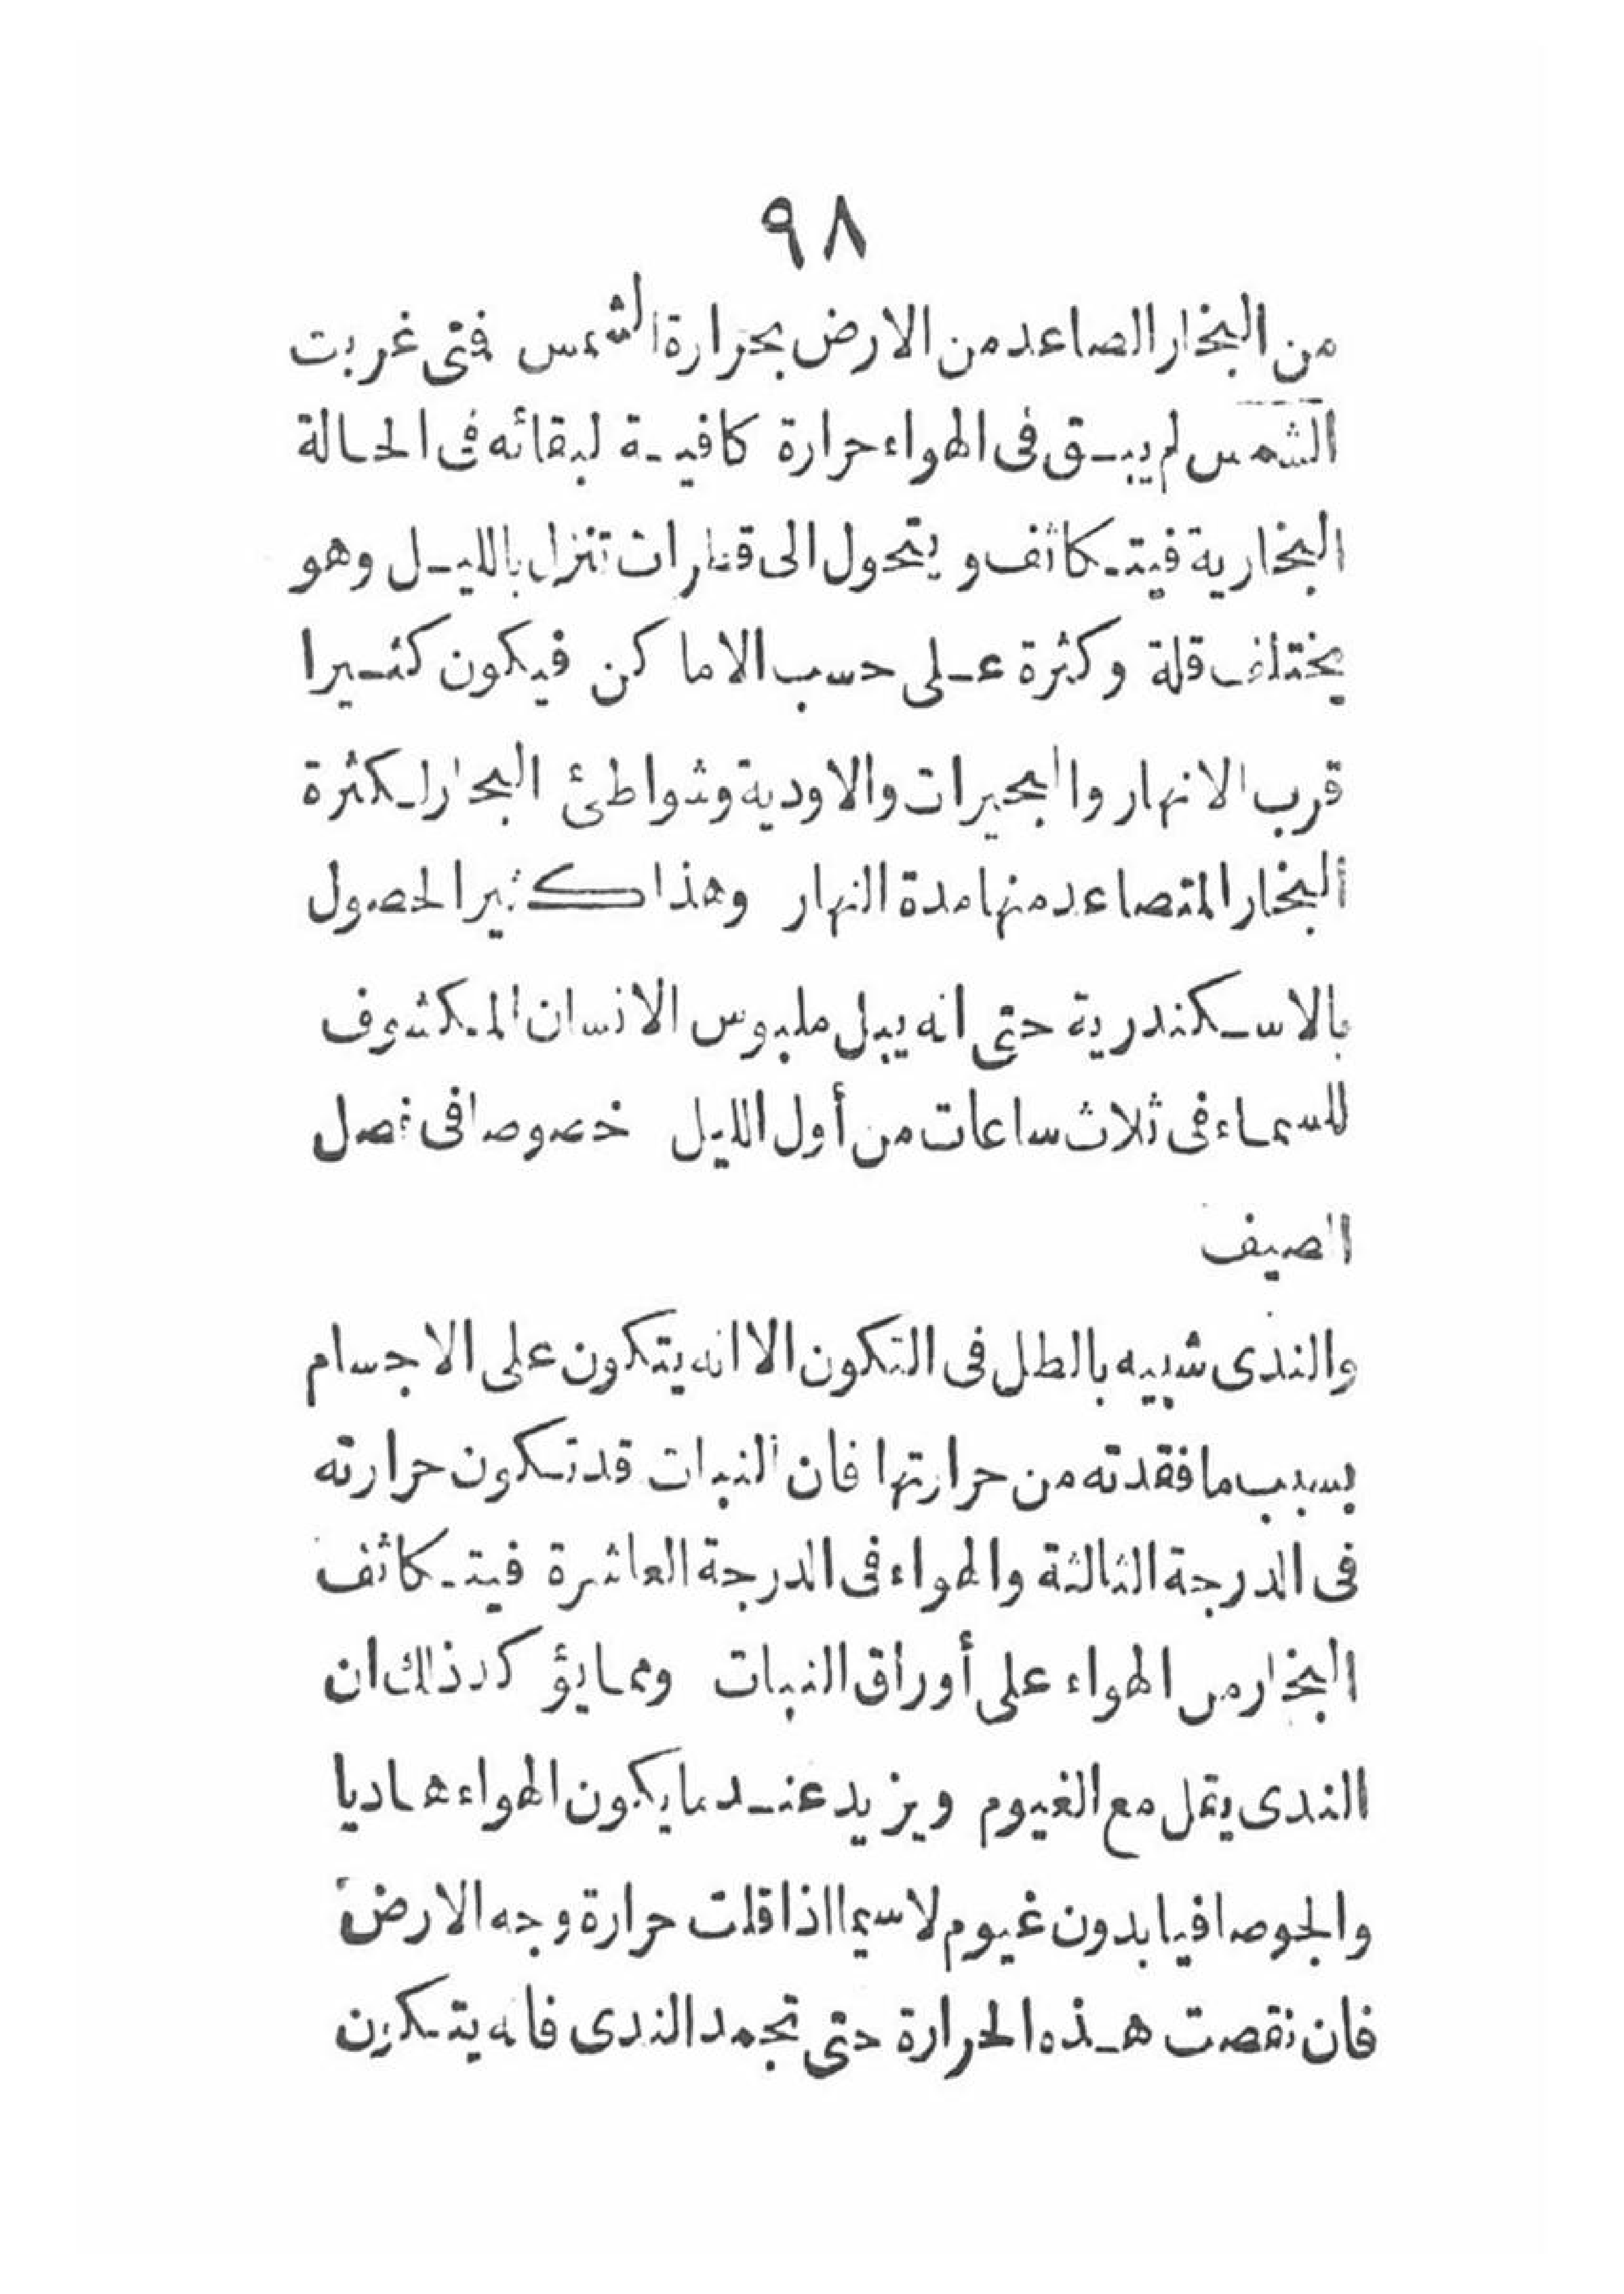 ٩٨
من البخار الصاعد من الارض بحرارة الشمس فمتى غربت
الشمس لم يبق فى الهواء حرارة كافية لبقائه فى الحالة
البخارية فيتكاثف و يتحول الى قطرات تنزل بالليل وهو
يختلف قلة وكثرة على حسب الاماكن فيكون كثيرا
قرب الانهار والبحيرات والاودية وشواطئ البحار لكثرة
البخار المتصاعد منها مدة النهار وهذا كثير الحصول
بالاسكندرية حتى انه يبل ملبوس الانسان المكشوف
للسماء فى ثلاث ساعات من أول الليل خصوصا فى فصل
الصيف
والندى شبيه بالطل فى التكون الا انه يتكون على الاجسام
بسبب ما فقدته من حرارتها فان النبات قد تكون حرارته
فى الدرجة الثالثة والهواء فى الدرجة العاشرة فيتكاثف
البخار من الهواء على أوراق النبات ومما يؤكد ذلك ان
الندى يقل مع الغيوم ويزيد عند ما يكون الهواء هاديا
والجو صافيا بدون غيوم لاسيما اذا قلت حرارة وجه الارض
فان نقصت هذه الحرارة حتى تجمد الندى فانه يتكون